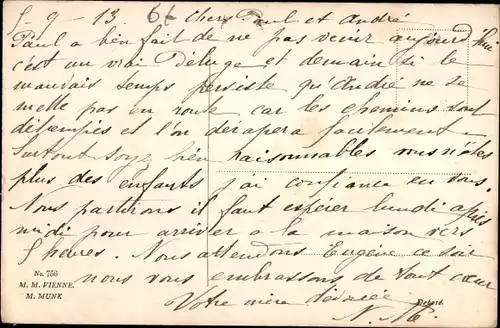 5-9-13 Chers Paul et André
Paul a bien fait de ne pas venir aujourd'hui
c'est un vrai Déluge et demain si le
mauvais temps persiste qu'André ne se
mette pas en route car les chemins sont
détrempés et l'on dérapera facilement.
Surtout soyez bien raisonnables vous n'êtes
plus des enfants j'ai confiance en vous.
Nous partirons il faut espérer lundi après
midi pour arriver à la maison vers
5 heures. Nous attendons Eugène ce soir
nous vous embrassons de tout cœur
Votre mère
No. 756
M. M. VIENNE.
M. MUNK
Déposé.